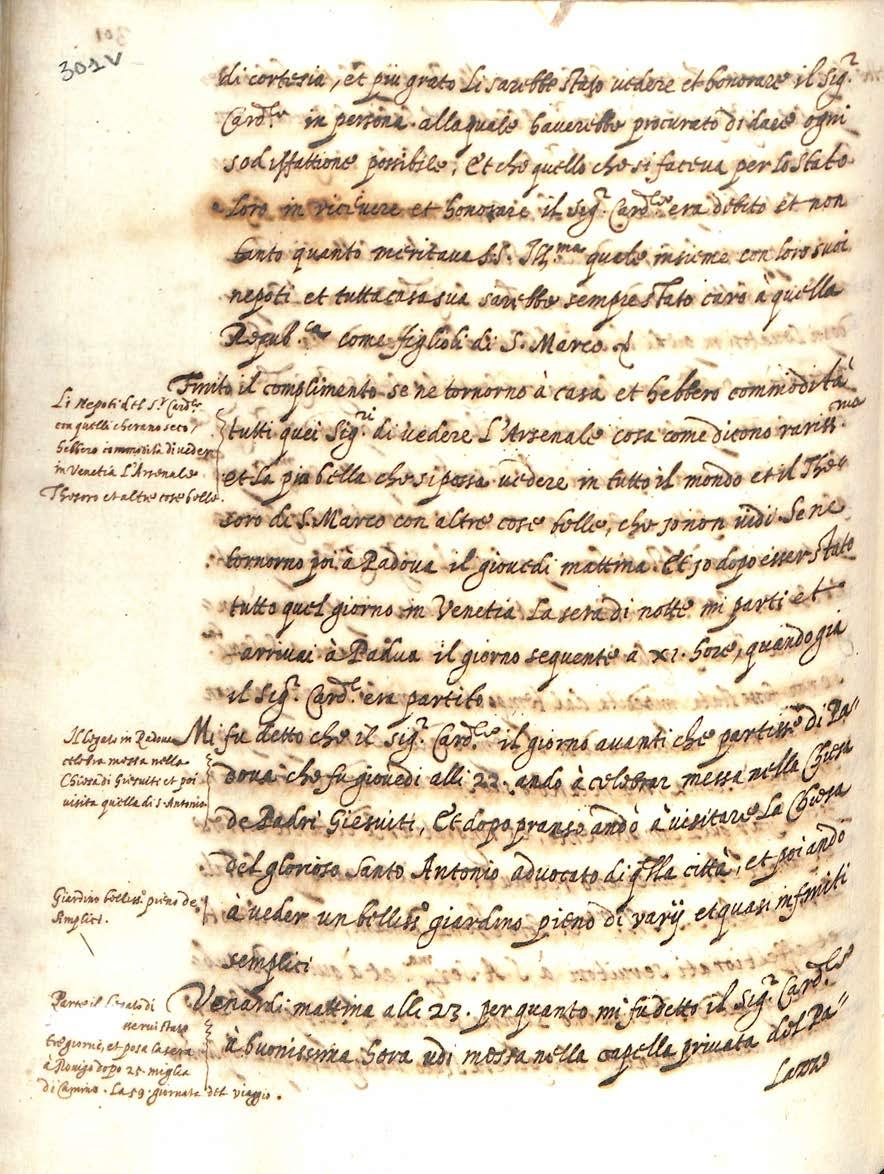 301
301V
di cortesia, et più grato li sarebbe stato vedere et honorare il Sig.r
Card.le in persona. alla quale haverebbe procurato di dare ogni
sodisfattione possibile; Et che quello che si faceva per lo stato
loro in ricevere et honorare il Sig.r Card.le era debito et non
tanto quanto meritava S.S. Ill.ma quale insieme con loro suoi
nepoti et tutta casa sua sarebbe sempre stato caro à quella
Repub.ca come figlioli di S. Marco.
Finito il complimento se ne tornorno à casa et hebbero commodità
tutti quei Sig.ri di vedere L'Arsenale cosa come dicono rariss.ma
et La più bella che si possa vedere in tutto il mondo et il The=
soro di S. Marco con altre cose belle, che io non vidi Se ne
tornorno poi à Padova il giovedi mattina. Et io dopo esser stato
tutto quel giorno in Venetia La sera di notte mi parti et
arrivai à Padua il giorno sequente à XI. hore, quando già
il Sig.r Card.le era partito
Mi fu detto che il Sig.r Card.le il giorno avanti che partisse di Pa=
dova che fu giovedi alli 22. andò à celebrar messa nella Chiesa
de Padri Giesuiti, Et dopo pranso andò à visitare La Chiesa
del glorioso Santo Antonio advocato di q.lla città, et poi andò
à veder un belliss.o giardino pieno di varij et quasi infiniti
semplici
Venardi mattina alli 23. per quanto mi fu detto il Sig.r Card.le
à buonissima hora udi messa nella capella privata del Pa=
Lazzo
Li Nepoti del S.r Card.le
con quelli che erano seco
hebbero commodità di veder
in Venetia L'Arsenale
Thesoro et altre cose belle.
Il legato in Padova
celebra messa nella
Chiesa di Giesuiti et poi
visita quella di S. Antonio
Giardino belliss.o pieno de
semplici.
Parte il Legato di
servi stato
tre giorni, et posa la sera
à Rovigo dopo 25 miglia
di Camino. La 59. giornata del viaggio.